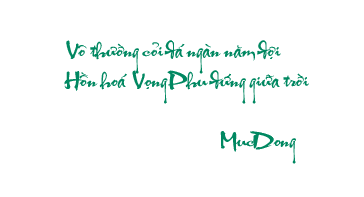 Vô thường cõi đá ngàn năm đợi
Hồn hoá Vọng Phu đứng giữa trời
MucDong